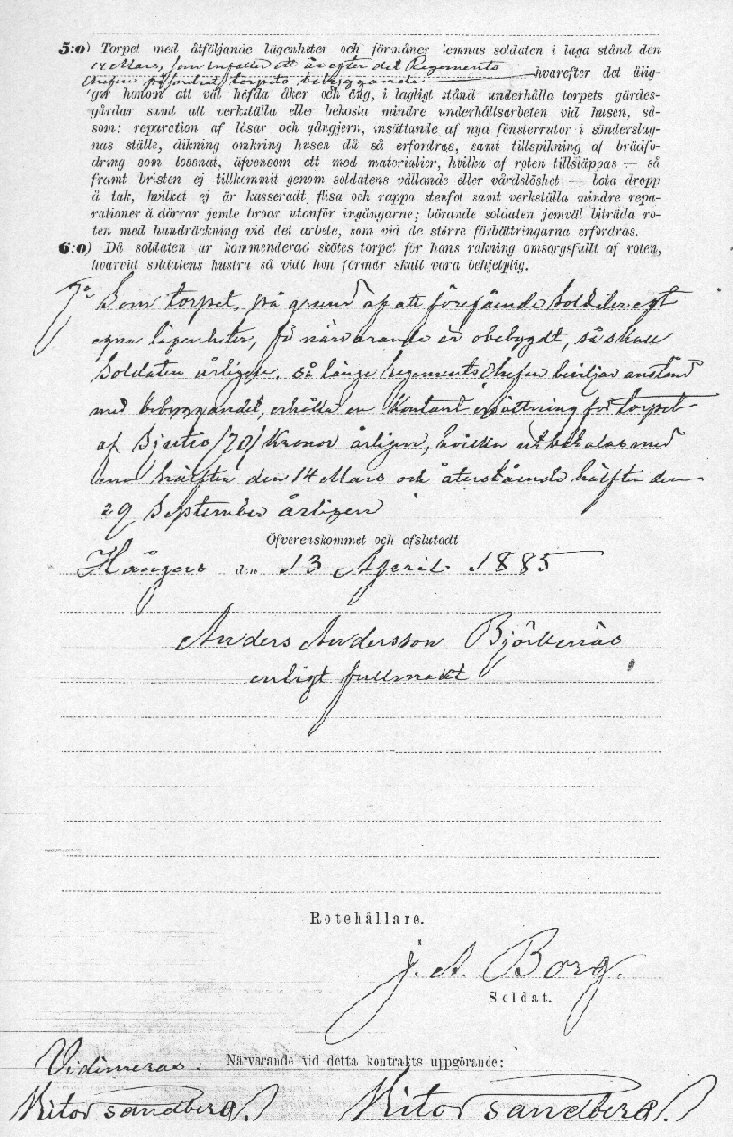 5:o) Torpet med åtföljande lägenheter och förmåner lemnas soldaten i laga stånd den
14 Mars, som infaller ett år efter det Regements
Chefen påfordrat torpets bebyggande hvarefter det ålig-
ger honom att väl häfda åker och äng, i lagligt stånd underhålla torpets gärdes-
gårdar samt att verkställa eller bekosta mindre underhållsarbeten vid husen, så-
som: reparation af låsar och gångjern, insättande af nya fönsterrutor i sönderslag-
nas ställe, dikning omkring husen då så erfordras, samt tillspikning af brädfo-
dring som lossnat, äfvensom att med materialier, hvilka af roten tillsläppas — så
framt bristen ej tillkommit genom soldatens vållande eller vårdslöshet — bota dropp
å tak, hvilket ej är kasseradt, flisa och rappa stenfot samt verkställa mindre repa-
rationer å dörrar jemte broar utanför ingångarne; börande soldaten jemväl biträda ro-
ten med handräckning vid det arbete, som vid de större förbättringarna erfordras.
6:o) Då soldaten är kommenderad skötes torpet för hans räkning omsorgsfullt af roten,
hvarvid soldatens hustru så vidt hon förmår skall vara behjelplig.
7o Som torpet, på grund af att föregående soldater egt
egna lägenheter, för närvarande är obebygdt, så skall
Soldaten årligen, så länge Regements Chefen beviljar anstånd
med bebyggandet, erhålla en Kontant ersättning för torpet
af Sjuttio /70/ Kronor årligen, hvilka utbetalas med
ena hälften den 14 Mars och återstående hälften den
29 September årligen
Öfverenskommet och afslutadt
Hånger den 13 April 1885
Anders Andersson Björkenäs
enligt fullmakt
Rotehållare.
J. A. Borg.
Soldat.
Vidimeras. Närvarande vid detta kontrakts uppgörande:
Vitor Sandberg. Vitor Sandberg.